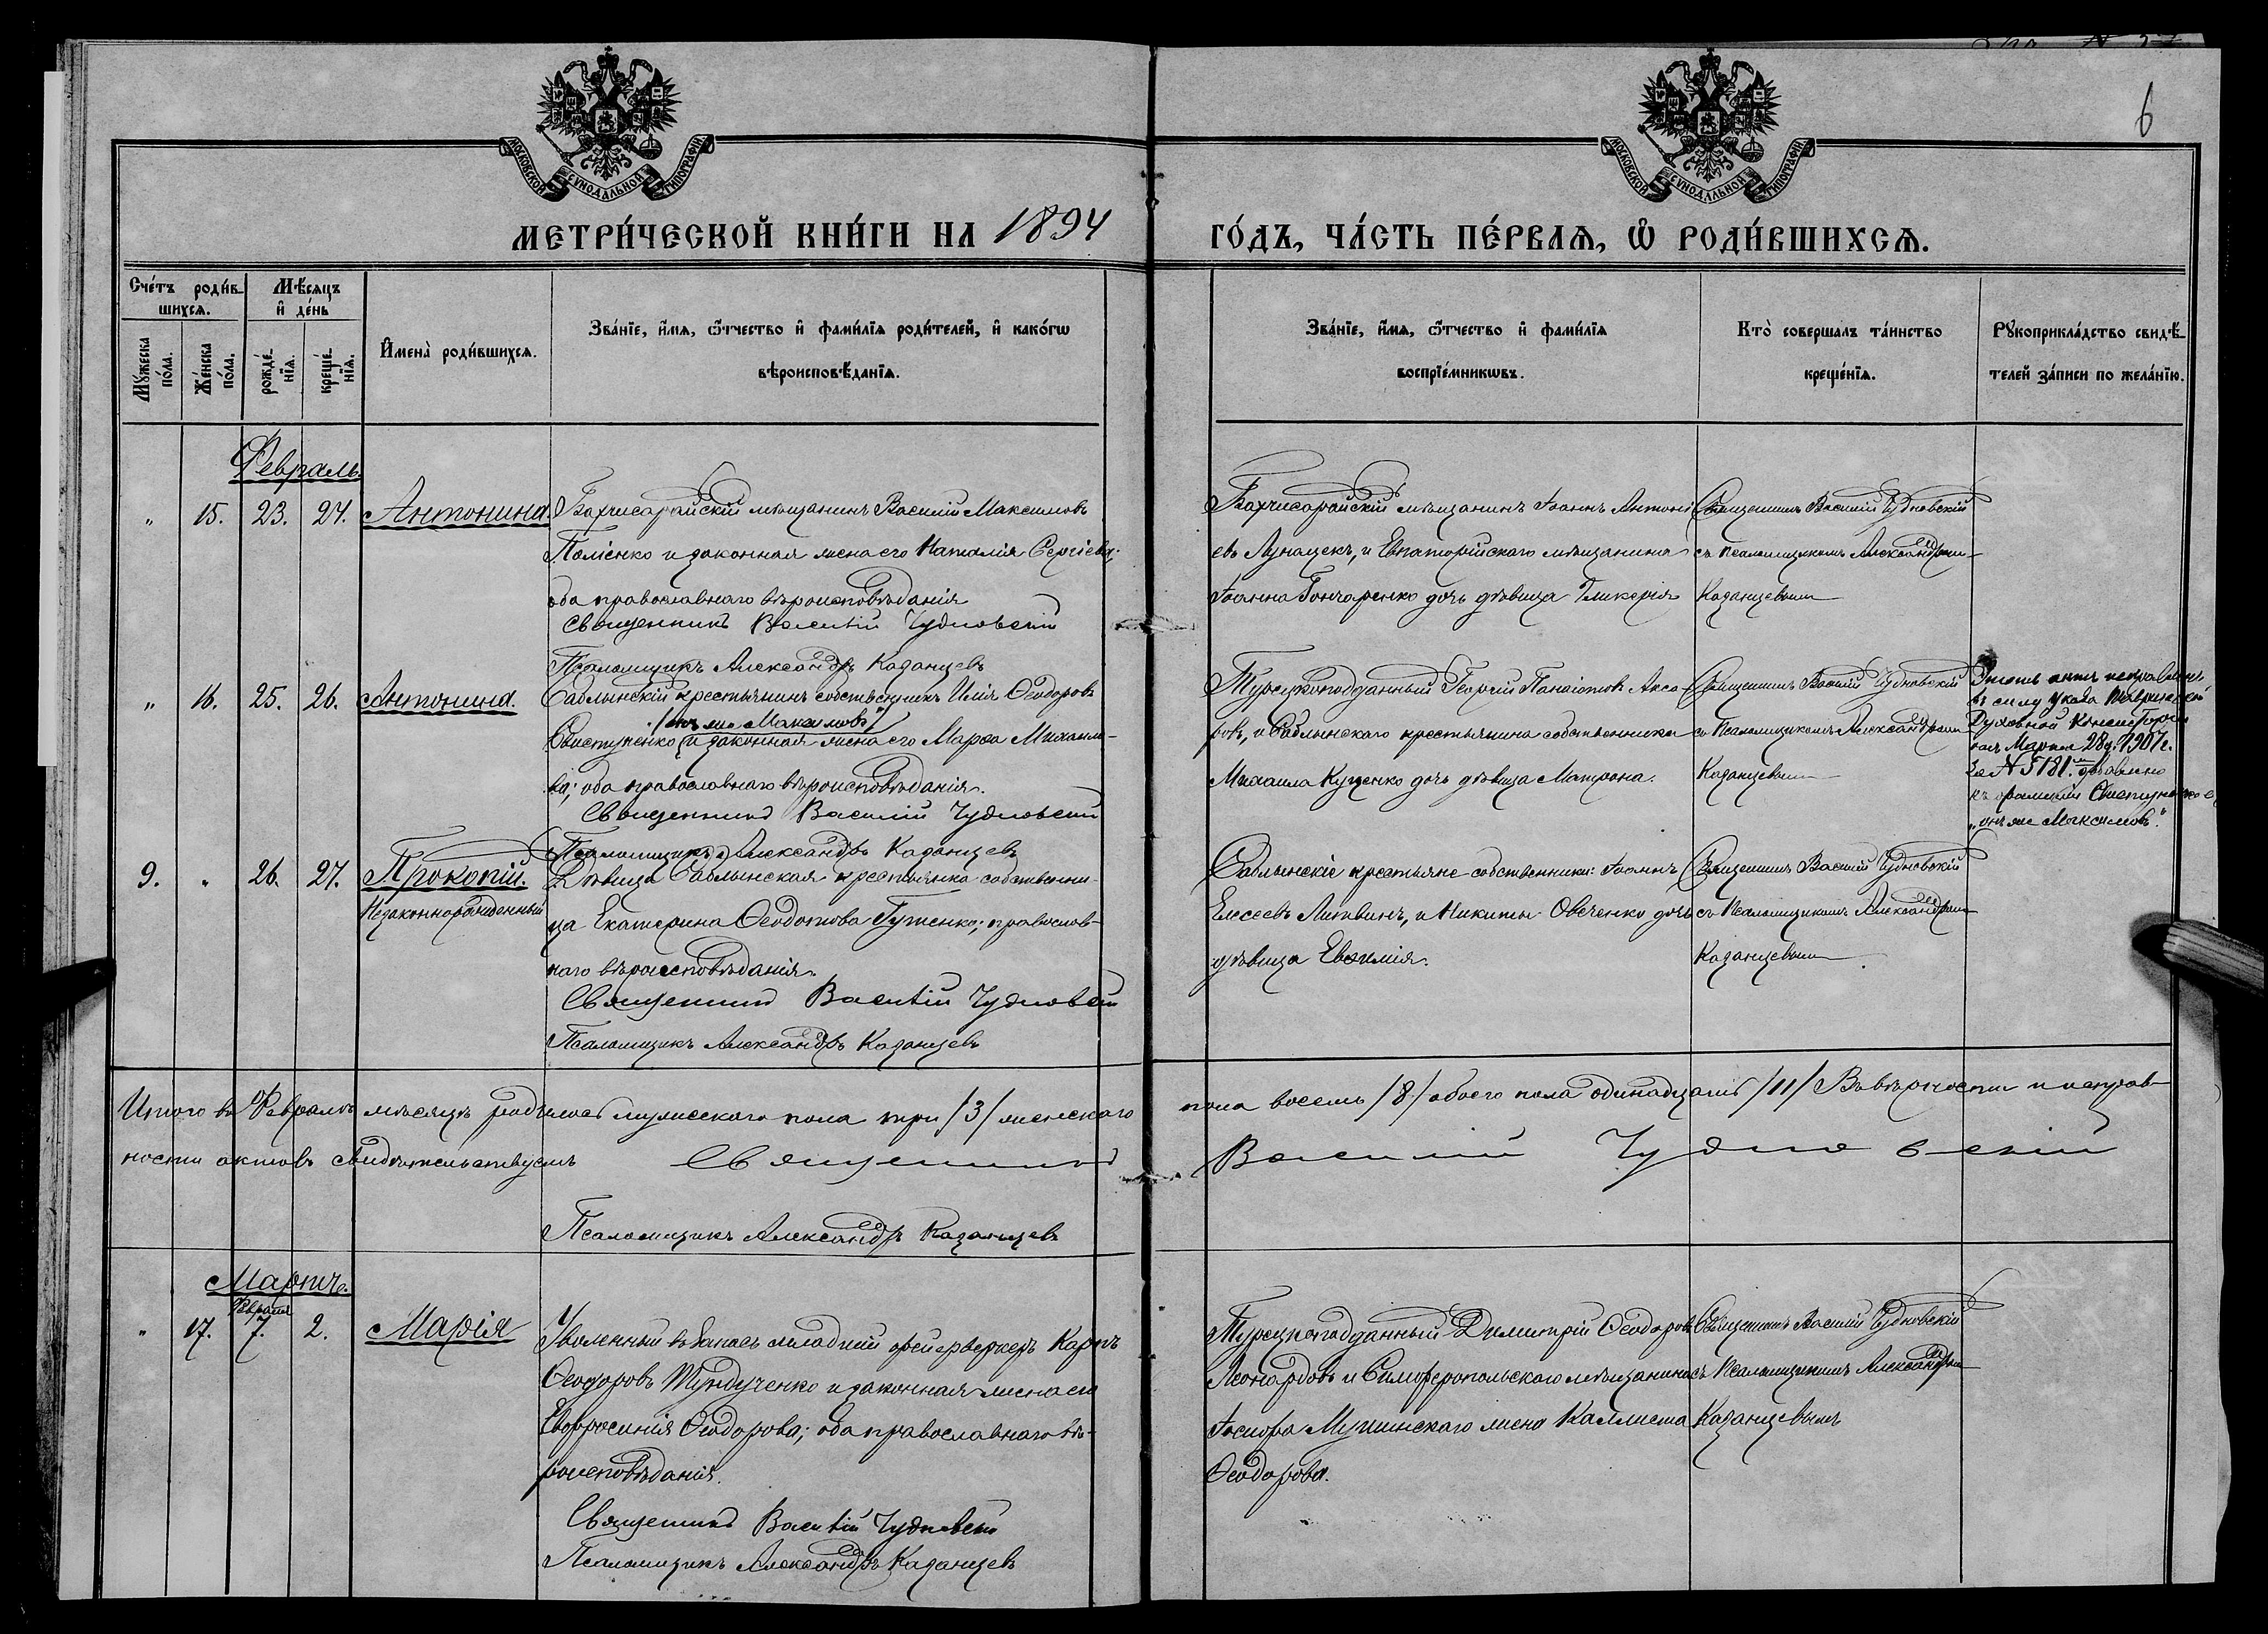 6
МОСКОВСКОЙ СѴНОДАЛЬНОЙ ТИПОГРАФІИ.
МОСКОВСКОЙ СѴНОДАЛЬНОЙ ТИПОГРАФІИ.
МЕТРИ́ЧЕСКОЙ КНИ́ГИ НА 1894
ГО́ДЪ, ЧА́СТЬ ПЕ́РВАѦ, Ѡ҆ РОДИ́ВШИХСѦ.
Сче́тъ роди́в-
шихсѧ.
Мѣ́сяцъ
и҆ де́нь
Мꙋ́жеска по́ла.
Же́нска по́ла.
рожде́-
нїѧ.
креще́-
нїѧ.
И҆мена̀ роди́вшихсѧ.
Зва́нїе, и҆́мѧ, ѻ҆́тчество и҆ фами́лїѧ роди́телей, и҆ како́гѡ
вѣроисповѣ́данїѧ.
Зва́нїе, и҆́мѧ, ѻ҆́тчество и҆ фами́лїѧ
воспрїе́мникѡвъ.
Кто̀ совершалъ та́инство
креще́нїѧ.
Рꙋкоприкла́дство свидѣ́-
телей за́писи по жела́нїю.
Февраль.
„ 15. 23. 27. Антонина
Бахчисарайскій мѣщанинъ Василій Максимовъ
Поліенко и законная жена его Наталія Сергіева;
оба православнаго вѣроисповѣданія
Священникъ Василій Чудновскій
Псаломщикъ Александръ Казанцевъ
Бахчисарайскій мѣщанинъ Іоаннъ Антоні
евъ Лунацекъ, и Евпаторійскаго мѣщанина
Іоанна Гончаренко дочь дѣвица Гликерія
Священникъ Василій Чудновскій
съ псаломщикомъ Александромъ
Казанцевымъ
„ 16. 25. 26. Антонина.
Саблынскій крестьянинъ собственникъ Илія Ѳеодоровъ
/онъ же Максимовъ/
Свистуненко и законная жена его Марѳа Михаило-
ва; оба православнаго вѣроисповѣданія.
Священникъ Василій Чудновскій
Псаломщикъ Александръ Казанцевъ
Турецкоподданный Георгій Панаіотовъ Аксо
ровъ, и Саблынскаго крестьянина собственника
Михаила Куценко дочь дѣвица Матрона.
Священникъ Василій Чудновскій
съ Псаломщикомъ Александромъ
Казанцевымъ
Этотъ актъ исправленъ
въ силу указа Таврической
Духовной Консисторіи
отъ Марта 28 д. 1907 г.
за № 5181. добавлено
къ фамиліи Свистуненко
„онъ же Максимовъ."
9. „ 26. 27. Прокопій.
Незаконнорожденный
Дѣвица Саблынская крестьянка собственни-
ца Екатерина Ѳеодотова Гутенко; православ-
наго вѣроисповѣданія.
Священникъ Василій Чудновскій
Псаломщикъ Александръ Казанцевъ
Саблынскіе крестьяне собственники: Іоаннъ
Елисеевъ Литвинъ, и Никиты Овсченко дочь
дѣвица Евѳимія.
Священникъ Василій Чудновскій
съ Псаломщикомъ Александромъ
Казанцевымъ
Итого въ Февралѣ мѣсяцѣ родилось мужескаго пола три /3/ женскаго
пола восемь /8/ обоего пола одинадцать /11/ Въ вѣрности и исправ-
ности актовъ свидѣтельствуемъ Священникъ
Василій Чудновскій
Псаломщикъ Александръ Казанцевъ
Мартъ.
Февраля
„ 17. 7. 2. Марія
Уволенный въ запасъ младшій фейерверкеръ Карпъ
Ѳеодоровъ Тундученко и законная жена его
Евфросинія Ѳеодорова; оба православнаго вѣ-
роисповѣданія.
Священникъ Василій Чудновскій
Псаломщикъ Александръ Казанцевъ
Турецкоподданный Димитрій Ѳеодоровъ
Леонардовъ и Симферопольскаго мѣщанина
Іосифа Мушинскаго жена Каллиста
Ѳеодорова.
Священникъ Василій Чудновскій
съ Псаломщикомъ Александромъ
Казанцевымъ